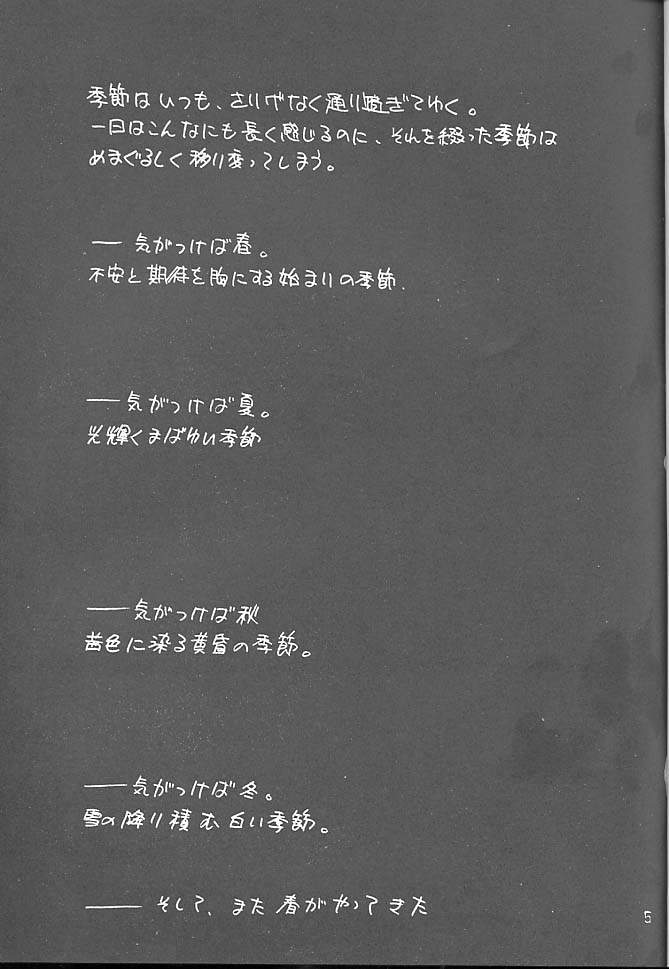 季節はいつも、さりげなく通り過ぎてゆく。
一日はこんなにも長く感じるのに、それを綴った季節は
めまぐるしく移り変ってしまう。
── 気がつけば春。
不安と期待を胸にする始まりの季節.
── 気がつけば夏。
光輝くまばゆい季節
── 気がつけば秋
茜色に染る黄昏の季節。
── 気がつけば冬。
雪の降り積む白い季節。
── そして、また春がやってきた
5